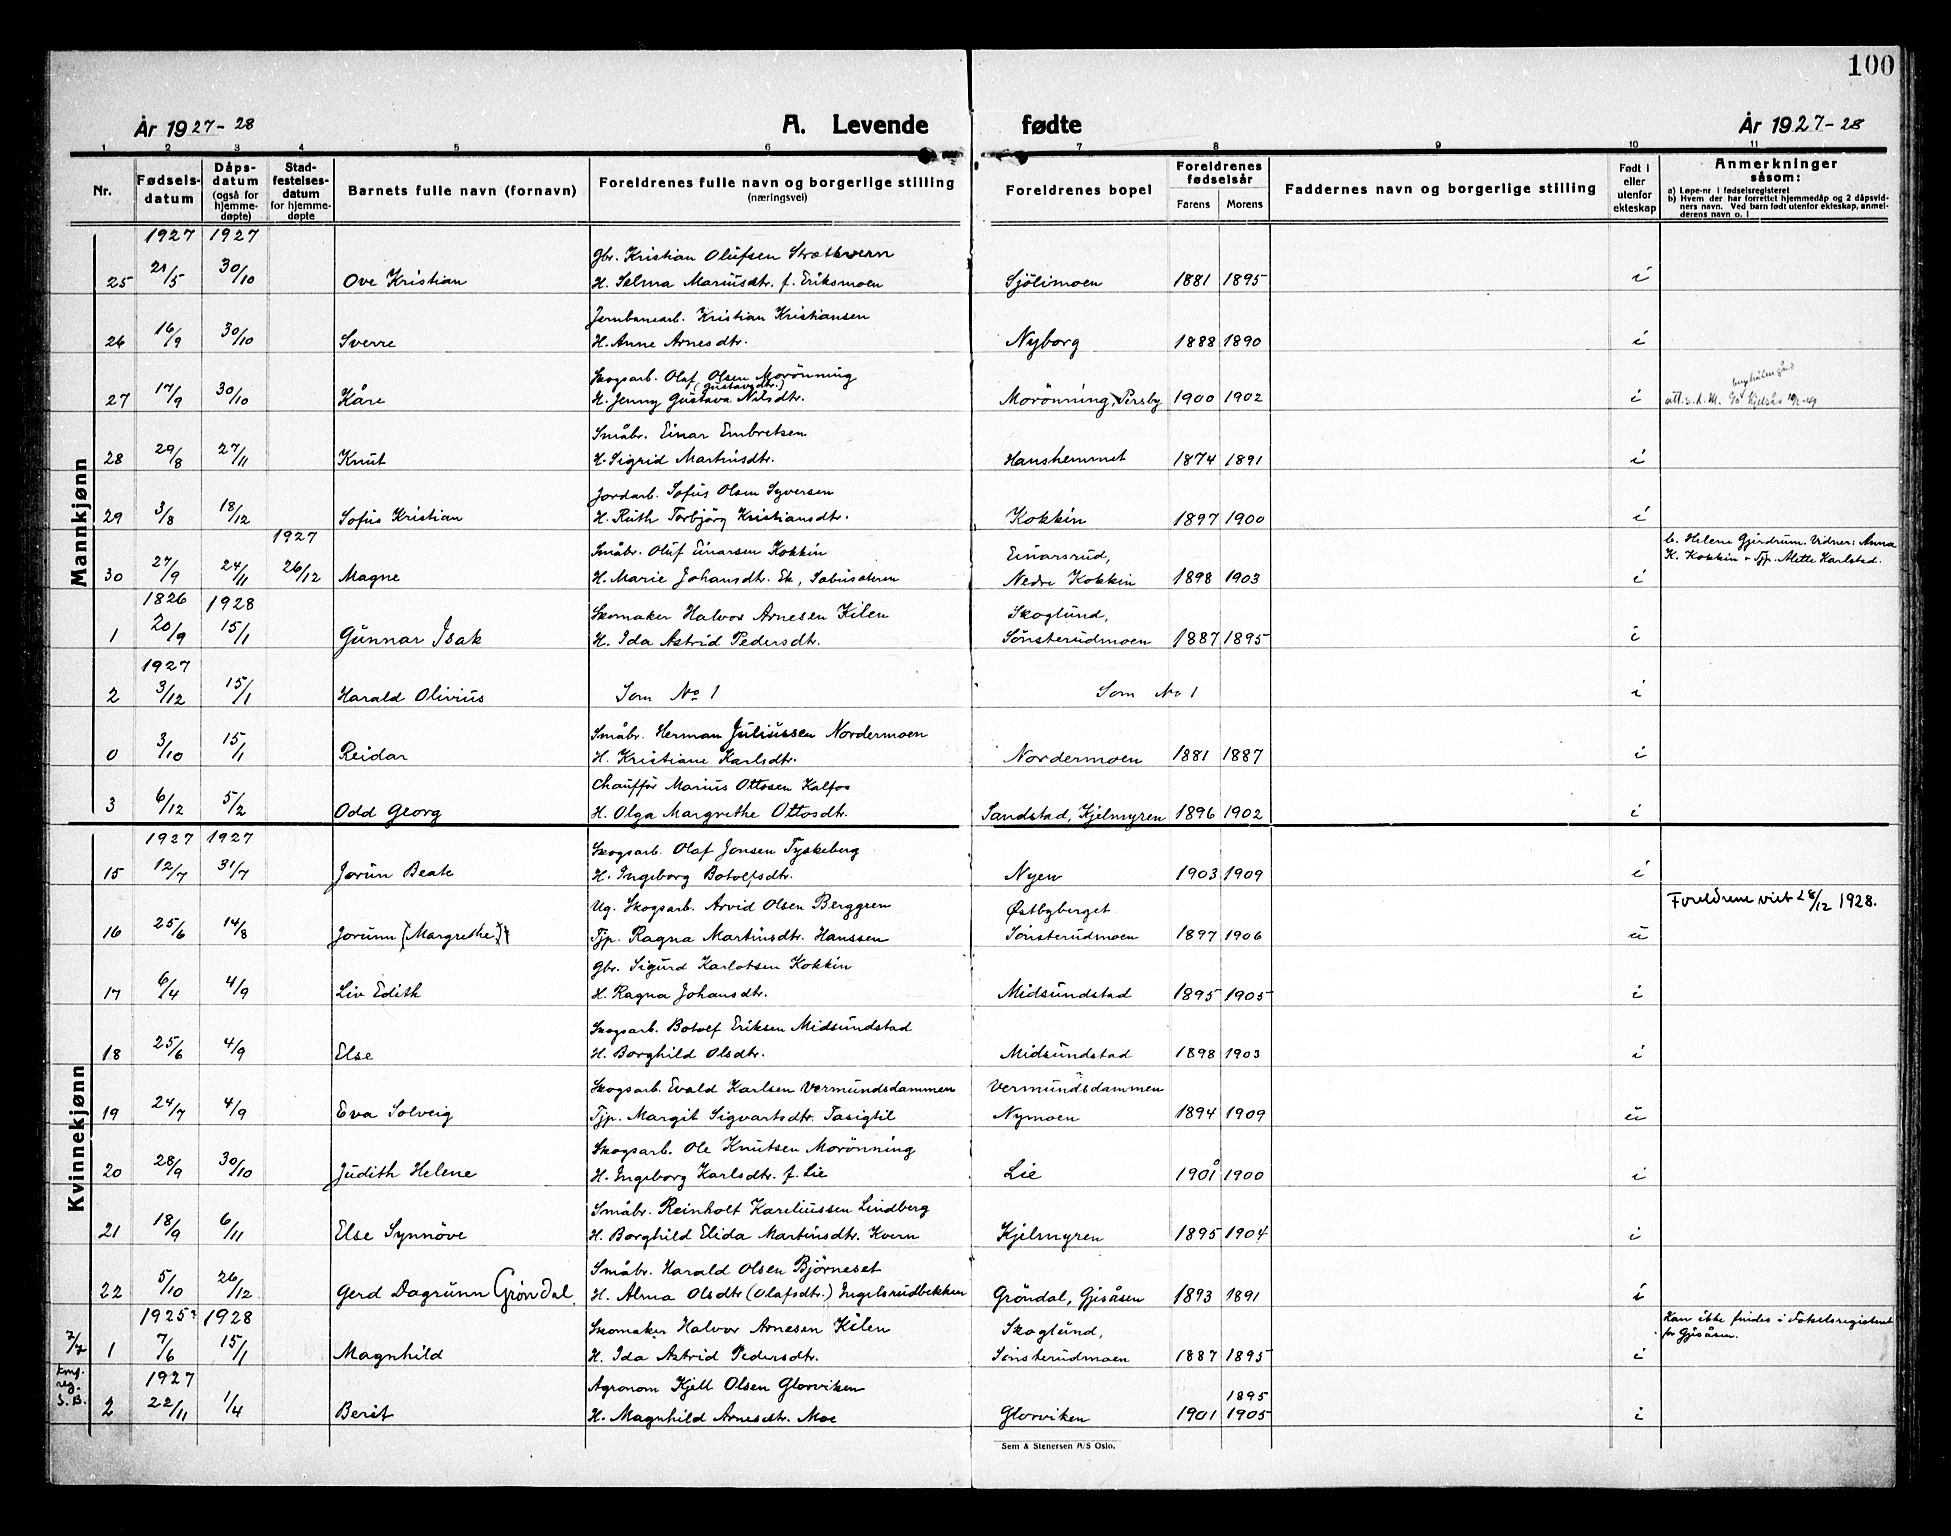 100
År 1927-28 A. Levende fødte År 1927-28
1 2 3 4 5 6 7 8 9 10 11
Nr. Fødselsdatum Dåpsdatum (også for hjemmedøpte) Stadfestelsesdatum for hjemmedøpte Barnets fulle navn (fornavn) Foreldrenes fulle navn og borgerlige stilling (næringsvei) Foreldrenes bopel Foreldrenes fødselsår Farens Morens Faddernes navn og borgerlige stilling Født i eller utenfor ekteskap Anmerkninger såsom:
a) Løpe-nr. i fødselsregisteret
b) Hvem der har forrettet hjemmedåp og 2 dåpsvidners navn. Ved barn født utenfor ekteskap, anmelderens navn o. l
Mannkjønn
1927 1927
Gbr. Kristian Olufsen Strætkvern
25 21/5 30/10 Ove Kristian H. Selma Mariusdtr. f. Eriksmoen Sjölimoen 1881 1895 i
Jernbanearb. Kristian Kristiansen
26 16/9 30/10 Sverre H. Anne Arnesdtr. Nyborg 1888 1890 i
Skogsarb. Olaf Olsen Morönning
(Gustavsdtr.)
27 17/9 30/10 Kåre H. Jenny Gustava Nilsdtr. Morönning, Persby 1900 1902 i att. s. d. M.
Småbr. Einar Embretsen
28 29/8 27/11 Knut H. Sigrid Martinsdtr. Hanshemmet 1874 1891 i
Jordarb. Sofus Olsen Syversen
29 3/8 18/12 Sofus Kristian H. Ruth Torbjörg Kristiansdtr. Kokkin 1897 1900 i
1927
Småbr. Oluf Einarsen Kokkin Einarsrud, b. Helene Gjerdrum. Vidner: Anna
30 27/9 24/11 26/12 Magne H. Marie Johansdtr. Ek, Nedre Kokkin 1898 1903 i K. Kokkin + Tjp. Alette Karlstad.
1826 1928
Skomaker Halvor Arnesen Kilen Skoglund,
1 20/9 15/1 Gunnar Isak H. Ida Astrid Pedersdtr. Sönsterudmoen 1887 1895 i
1927
2 3/12 15/1 Harald Olivius Som No 1 Som No 1 i
Småbr. Herman Juliussen Nordermoen
0 3/10 15/1 Reidar H. Kristiane Karlsdtr. Nordermoen 1881 1887 i
Chauffør Marius Ottosen Kalfos
3 6/12 5/2 Odd Georg H. Olga Margrethe Ottosdtr. Sandstad, Kjelmyren 1896 1902 i
Kvinnekjønn
1927 1927
Skogsarb. Olaf Jonsen Tyskeberg
15 12/7 31/7 Jorun Beate H. Ingeborg Botolfsdtr. Nyen 1903 1909 i
Ug. Skogsarb. Arvid Olsen Berggren Östbyberget Foreldrene viet 28/12 1928.
16 25/6 14/8 Jorunn (Margrethe) Tjp. Ragna Martinsdtr. Hanssen Sönsterudmoen 1897 1906 u
Gbr. Sigurd Karlotsen Kokkin
17 6/4 4/9 Liv Edith H. Ragna Johansdtr. Midsundstad 1895 1905 i
Skogsarb. Botolf Eriksen Midsundstad
18 25/6 4/9 Else H. Borghild Olsdtr. Midsundstad 1898 1903 i
Skogsarb. Evald Karlsen Vermundsdammen Vermundsdammen
19 24/7 4/9 Eva Solveig Tjp. Margit Sigvartsdtr. Tasigtil Nymoen 1894 1909 u
Skogsarb. Ole Knutsen Morönning
20 28/9 30/10 Judith Helene H. Ingeborg Karlsdtr. f. Lie Lie 1901 1900 i
Småbr. Reinholt Kareliussen Lindberg
21 18/9 6/11 Else Synnöve H. Borghild Elida Martinsdtr. Kvern Kjelmyren 1895 1904 i
Småbr. Harald Olsen Björneset
22 5/10 26/12 Gerd Dagrunn Gröndal. H. Alma Olsdtr (Olafsdtr.) Ingelsrudbekken Gröndal, Gjesåsen 1893 1891 i
1925? 1928
Skomaker Halvor Arnesen Kilen Skoglund, Kan ikke findes i Fødselsregisteret
7/7 1 7/6 15/1 Magnhild H. Ida Astrid Pedersdtr. Sönsterudmoen 1887 1895 i for Gjesåsen.
Konf. reg. S. B.
1927
Agronom Kjell Olsen Glorviken 1895
2 22/11 1/4 Berit H. Magnhild Arnesdtr. Moe Glorviken 1901 1905 i
Sem & Stenersen A/S Oslo.